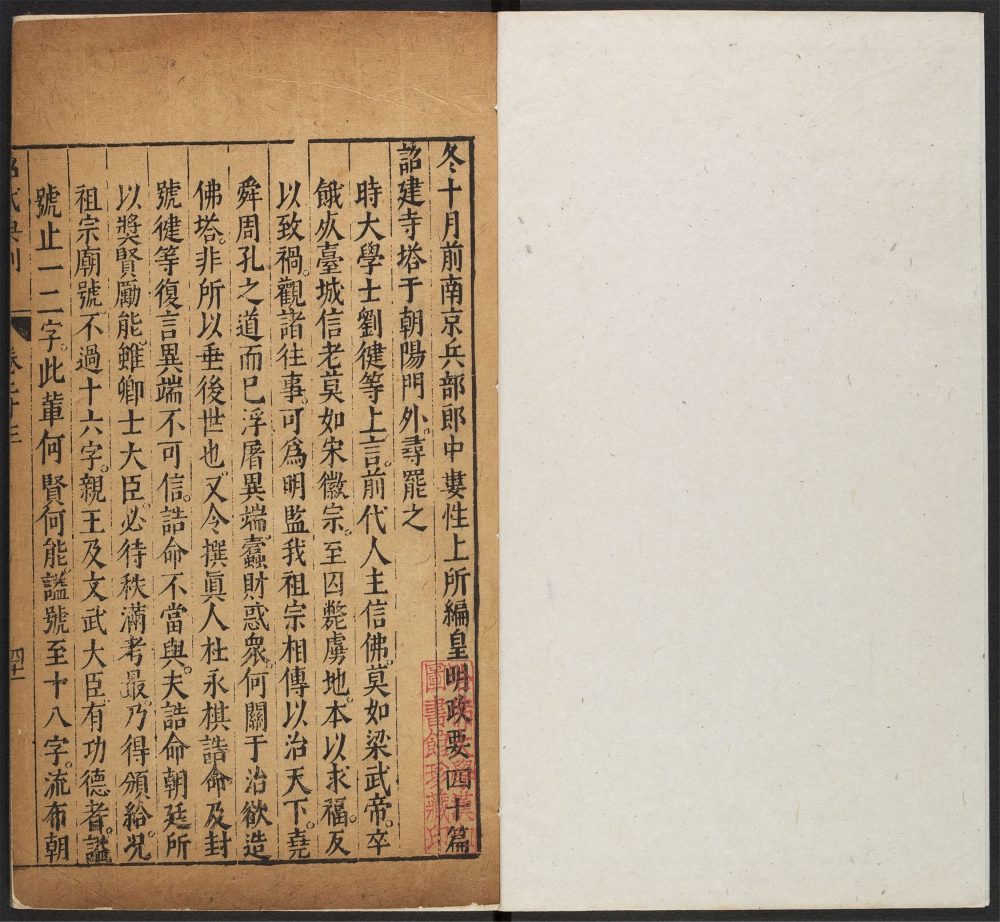 冬十月前南京兵部郎中婁性上所編皇明政要四十篇
詔建寺塔于朝陽門外。尋罷之
時大學士劉健等上言。前代人主信佛。莫如梁武帝。卒
餓死臺城信老莫如宋徽宗。至囚斃虜地。本以求福。反
以致禍。觀諸往事。可爲明監我祖宗相傳以治天下。堯
舜周孔之道而已浮屠異端。蠹財惑衆。何關于治欲造
佛塔。非所以垂後世也。又令撰眞人杜永棋誥命及封
號健等復言異端不可信。誥命不當與。夫誥命朝廷所
以奬賢勵能。雖卿士大臣。必待秩滿考最。乃得頒給。况
祖宗廟號不過十六字。親王及文武大臣。有功德者。謚
號止一二字。此輩何賢何能。謚號至十八字。流布朝
昭代典則
卷二十三
四十一
圖書館珍藏印